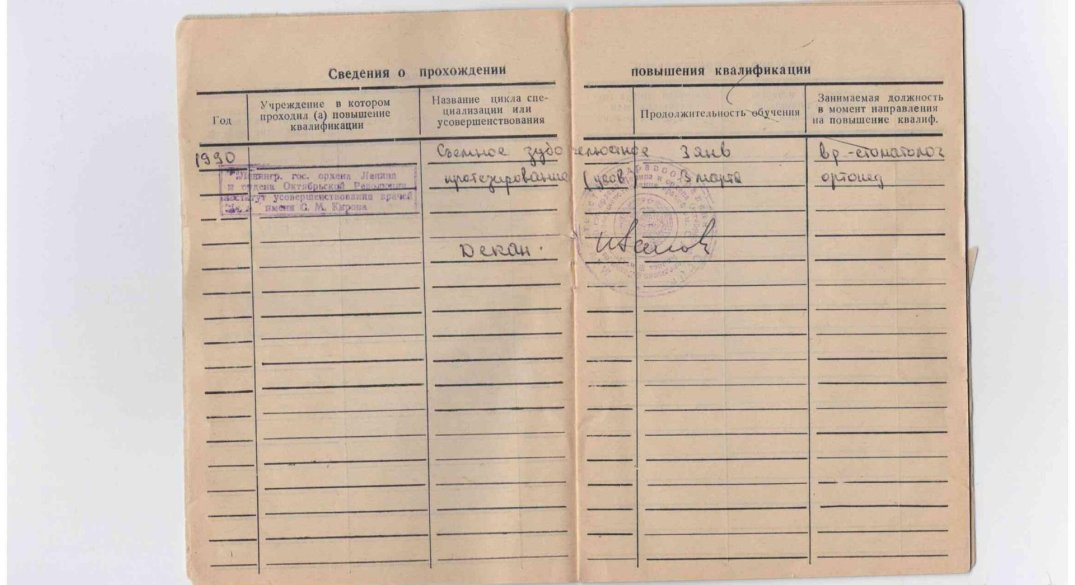 Сведения о прохождении повышения квалификации
Год
Учреждение в котором
проходил (а) повышение
квалификации
Название цикла спе-
циализации или
усовершенствования
Продолжительность обучения
Занимаемая должность
в момент направления
на повышение квалиф.
1990 Съемное зубочелюстное 3 янв вр.-стоматолог
Ленингр. гос. ордена Ленина
и ордена Октябрьской Революции
институт усовершенствования врачей
имени С. М. Кирова
протезирование (усов) марта ортопед
Декан.